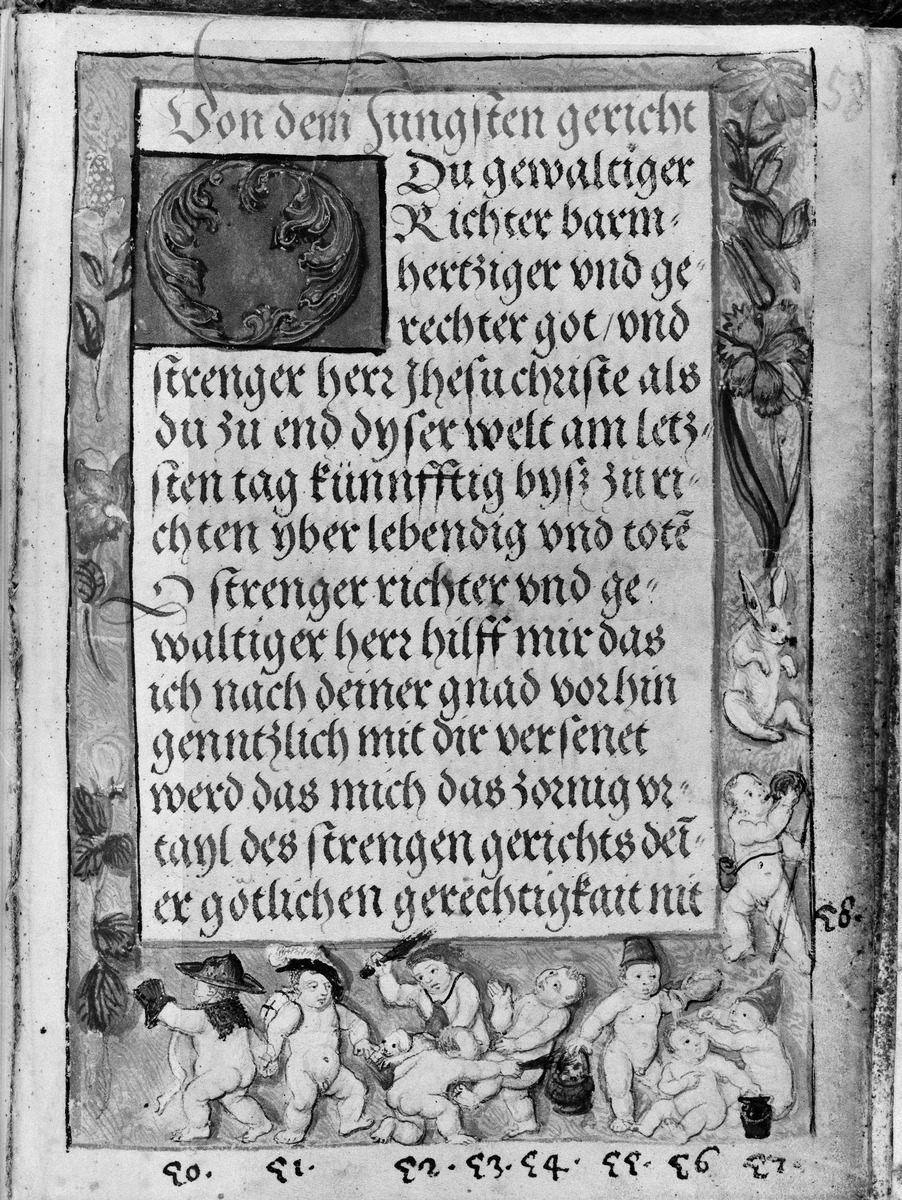 Von dem Jungsten gericht
Du gewaltiger
Richter barm-
hertziger vnd ge-
rechter got/vnd
strenger herr Jhesu christe als
du zu end dyser welt am letz-
sten tag künnfftig bysz zu ri-
chten yber lebendig vnd totē
O strenger richter vnd ge-
waltiger herr hilff mir das
ich nach deiner gnad vorhin
genntzlich mit dir versenet
werd das mich das zornig vr-
tayl des strengen gerichts deī-
er gotlichen gerechtigkait nit